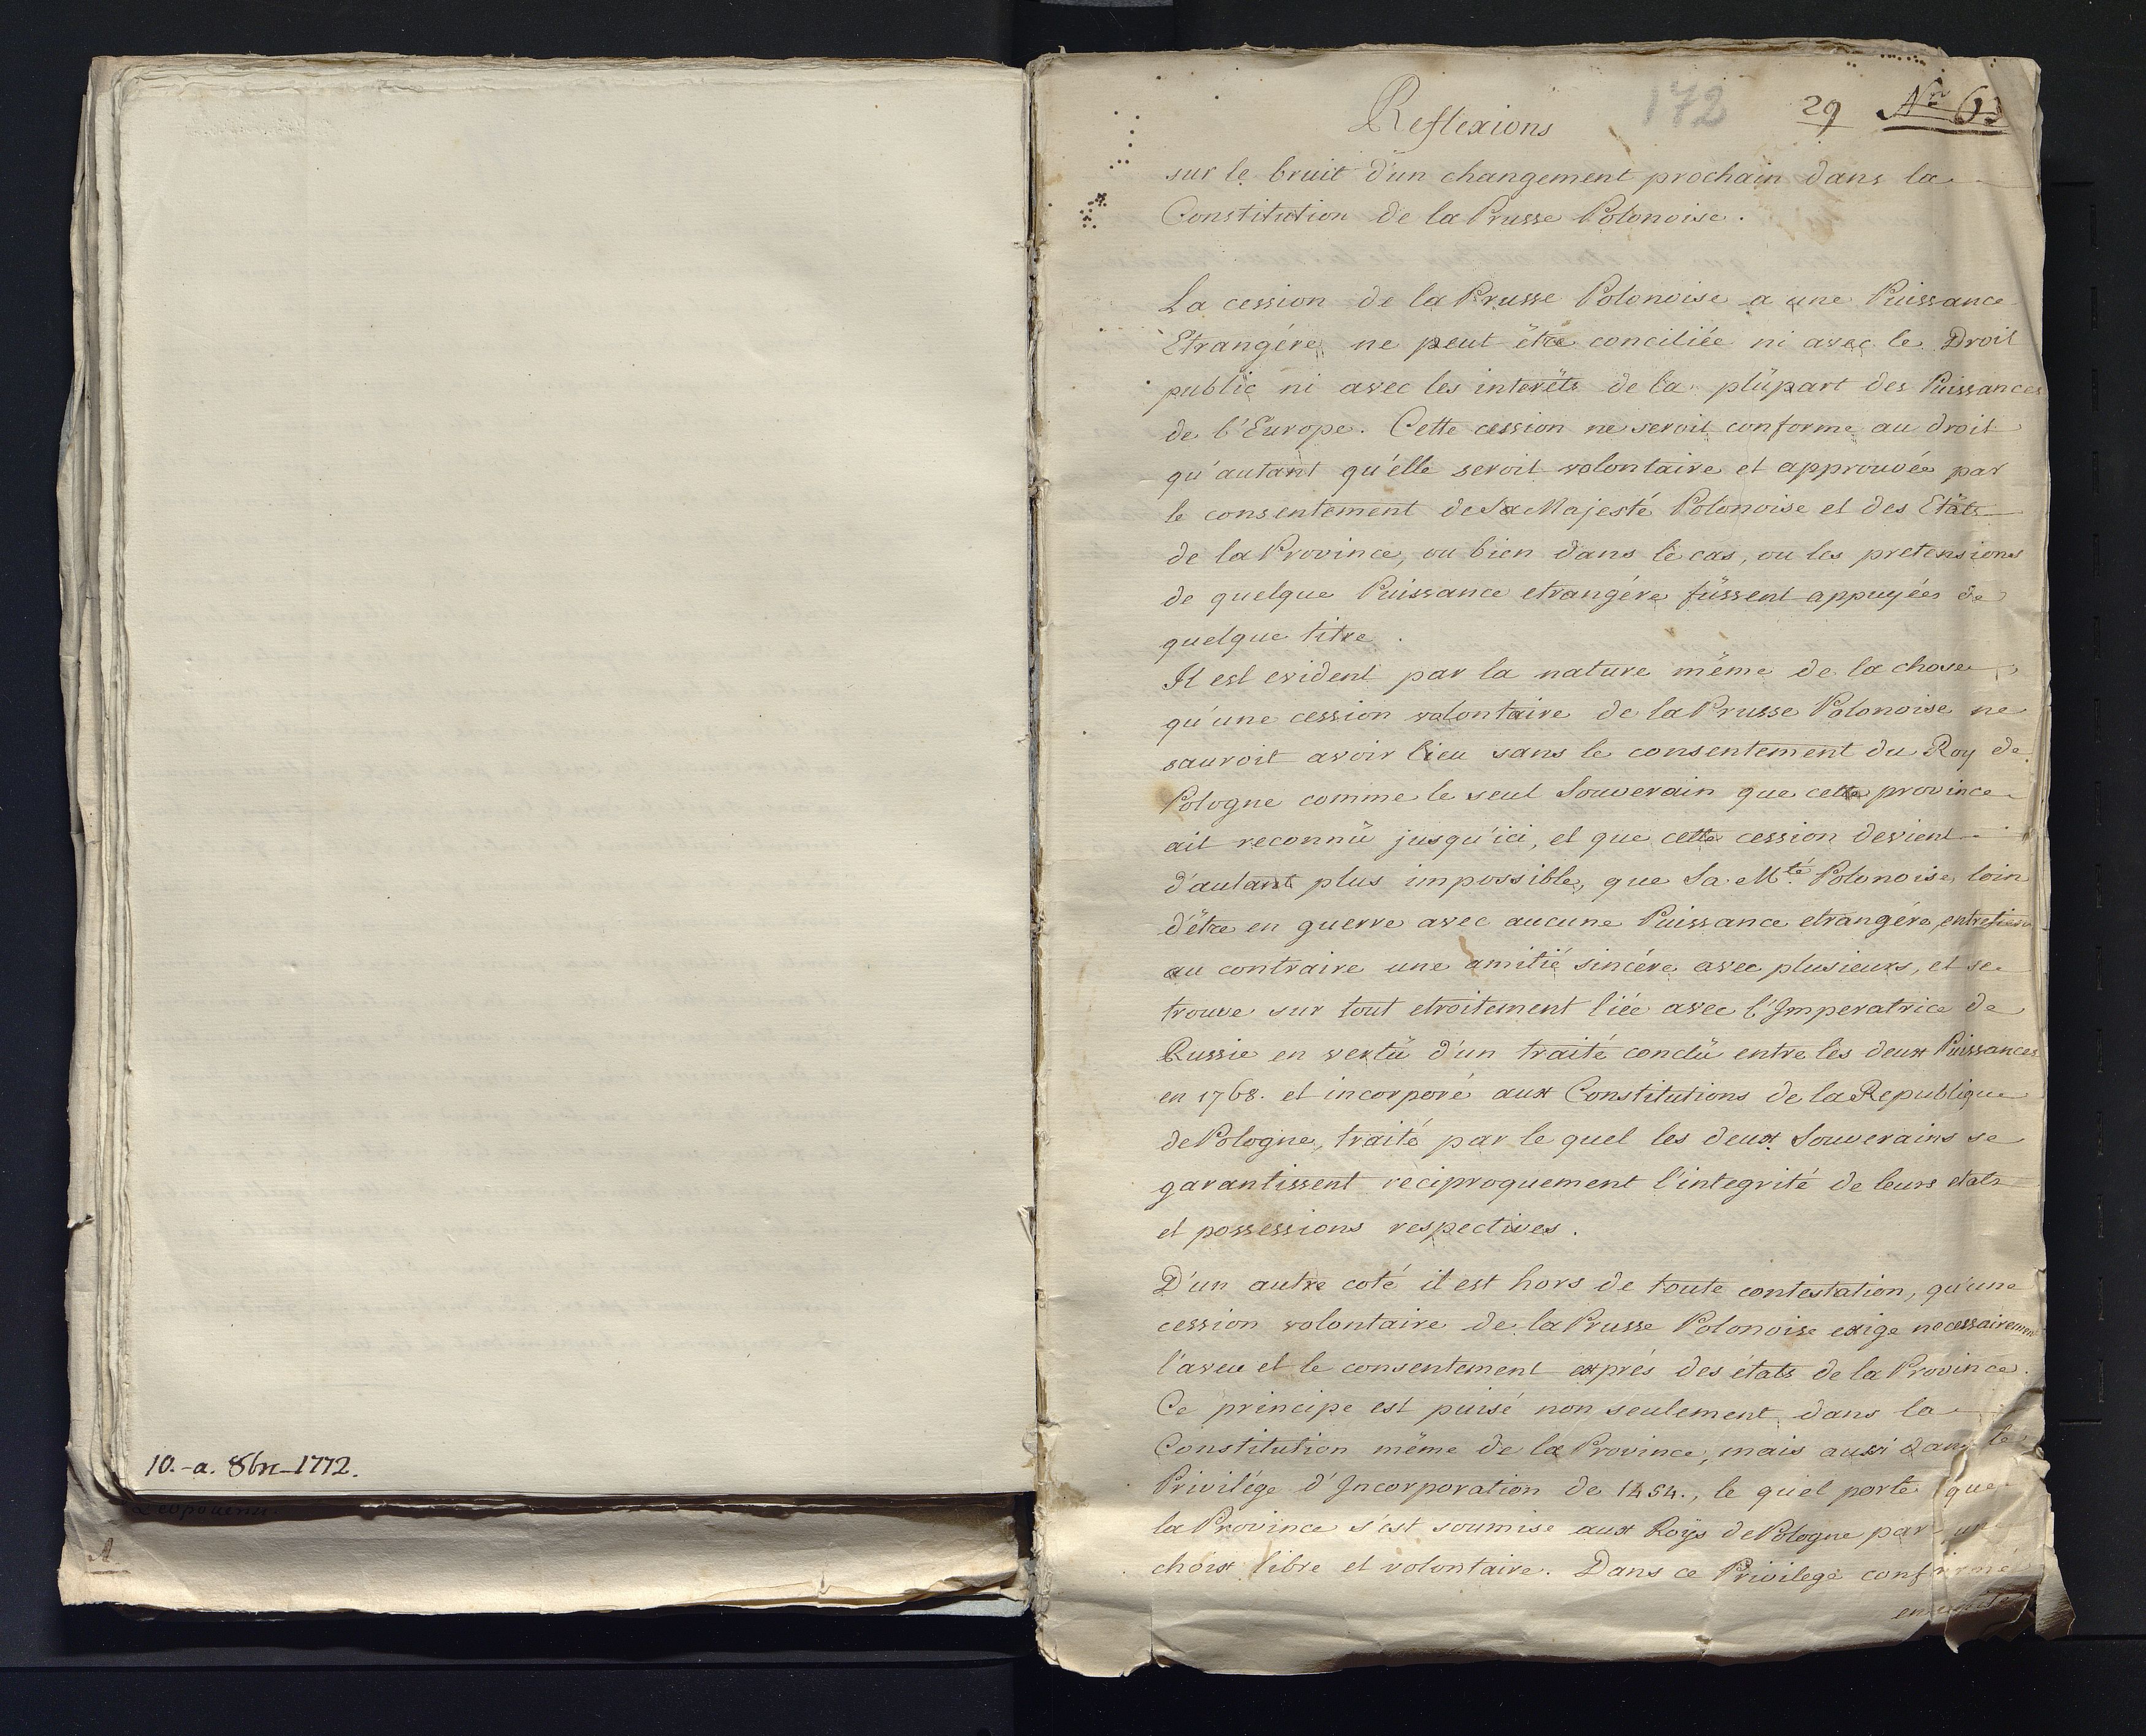 10.-a. 8bre_1772.
172 29 Nr 63
Reflexions
sur le bruit d'un changement prochain dans la
Constitution de la Prusse Polonoise.
La cession de la Prusse Polonoise a une Puissance
Etrangére ne peut être conciliée ni avec le Droit
public ni avec les interêts de la plûpart des Puissances
de l'Europe. Cette cession ne seroit conforme au droit
qu'autant qu'elle seroit volontaire et approuvée par
le consentement de Sa Majesté Polonoise et des Etâts
de la Province, ou bien dans le cas, ou les pretensions
de quelque Puissance etrangére fûssent appuyées de
quelque titre.
Il est evident par la nature même de la chose,
qu'une cession volontaire de la Prusse Polonoise ne
sauroit avoir lieu sans le consentement du Roy de
Pologne comme le seul Souverain que cette province
ait reconnû jusqu'ici, et que cette cession devient
d'autant plus impossible, que Sa Mté Polonoise, loin
d'être en guerre avec aucune Puissance etrangére, entretient
au contraire une amitié sincére avec plusieurs, et se
trouve sur tout etroitement liée avec l'Imperatrice de
Russie en vertû d'un traité conclû entre les deux Puissances
en 1768. et incorporé aux Constitutions de la Republique
de Pologne, traité par le quel les deux Souverains se
garantissent reciproquement l'integrité de leurs etats
et possessions respectives.
D'un autre coté il est hors de toute contestation, qu'une
cession volontaire de la Prusse Polonoise exige necessairement
l'aveu et le consentement exprés des états de la Province.
Ce principe est puisé non seulement dans la
Constitution même de la Province, mais aussi dans le
Privilége d'Incorporation de 1454., le quel porte que
la Province s'est soumise aux Roÿs de Pologne par un
choix libre et volontaire. Dans ce Privilege confirmé